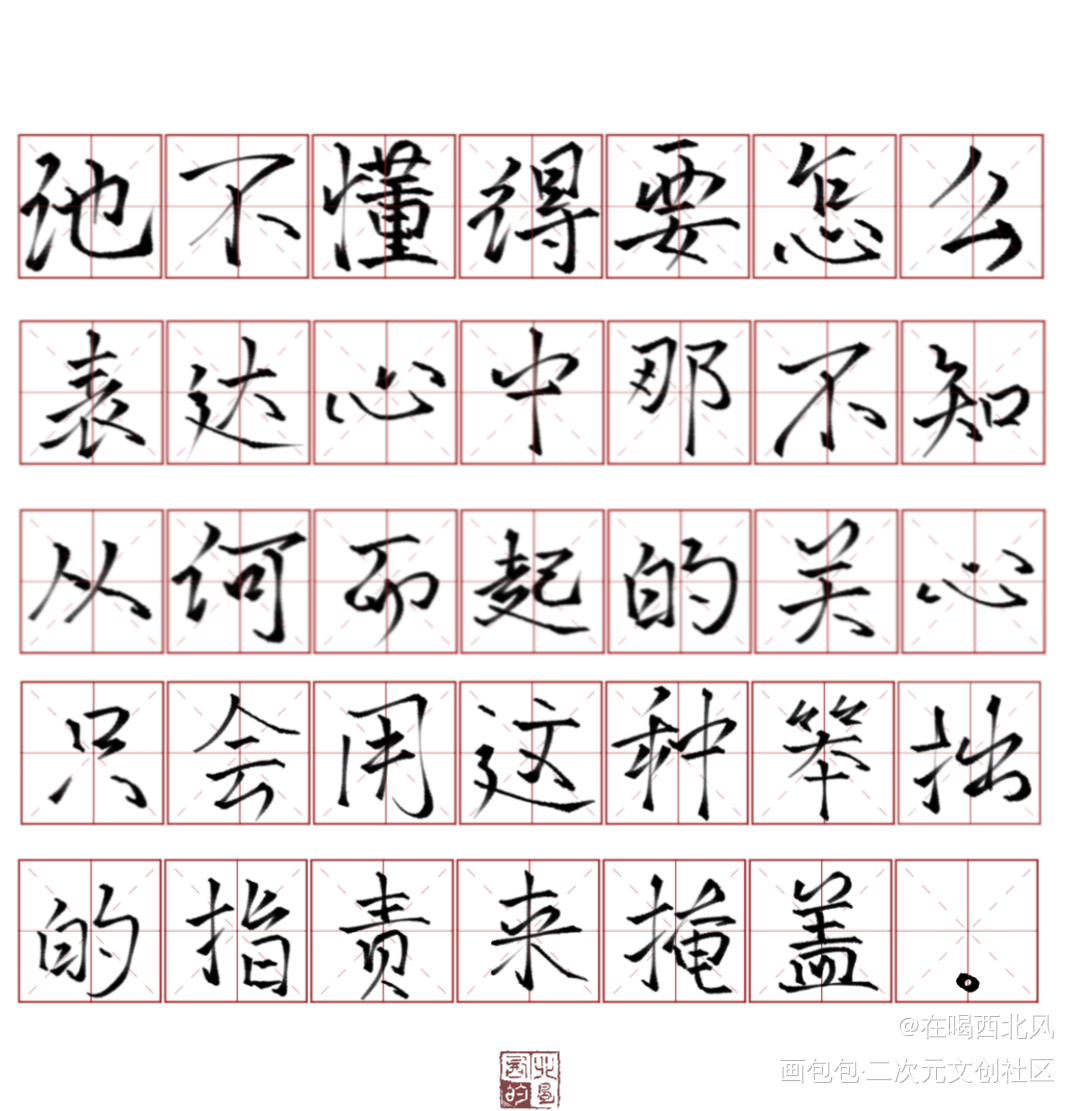 他不懂得要怎么
表达心中那不知
从何而起的关心
只会用这种笨拙
的指责来掩盖。
@在喝西北风
画包包·二次元文创社区